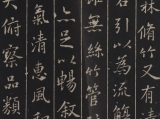 林脩竹又有
右引以為流觴
無絲竹管
亦足以暢敘
氣清惠風和
大俯察品類